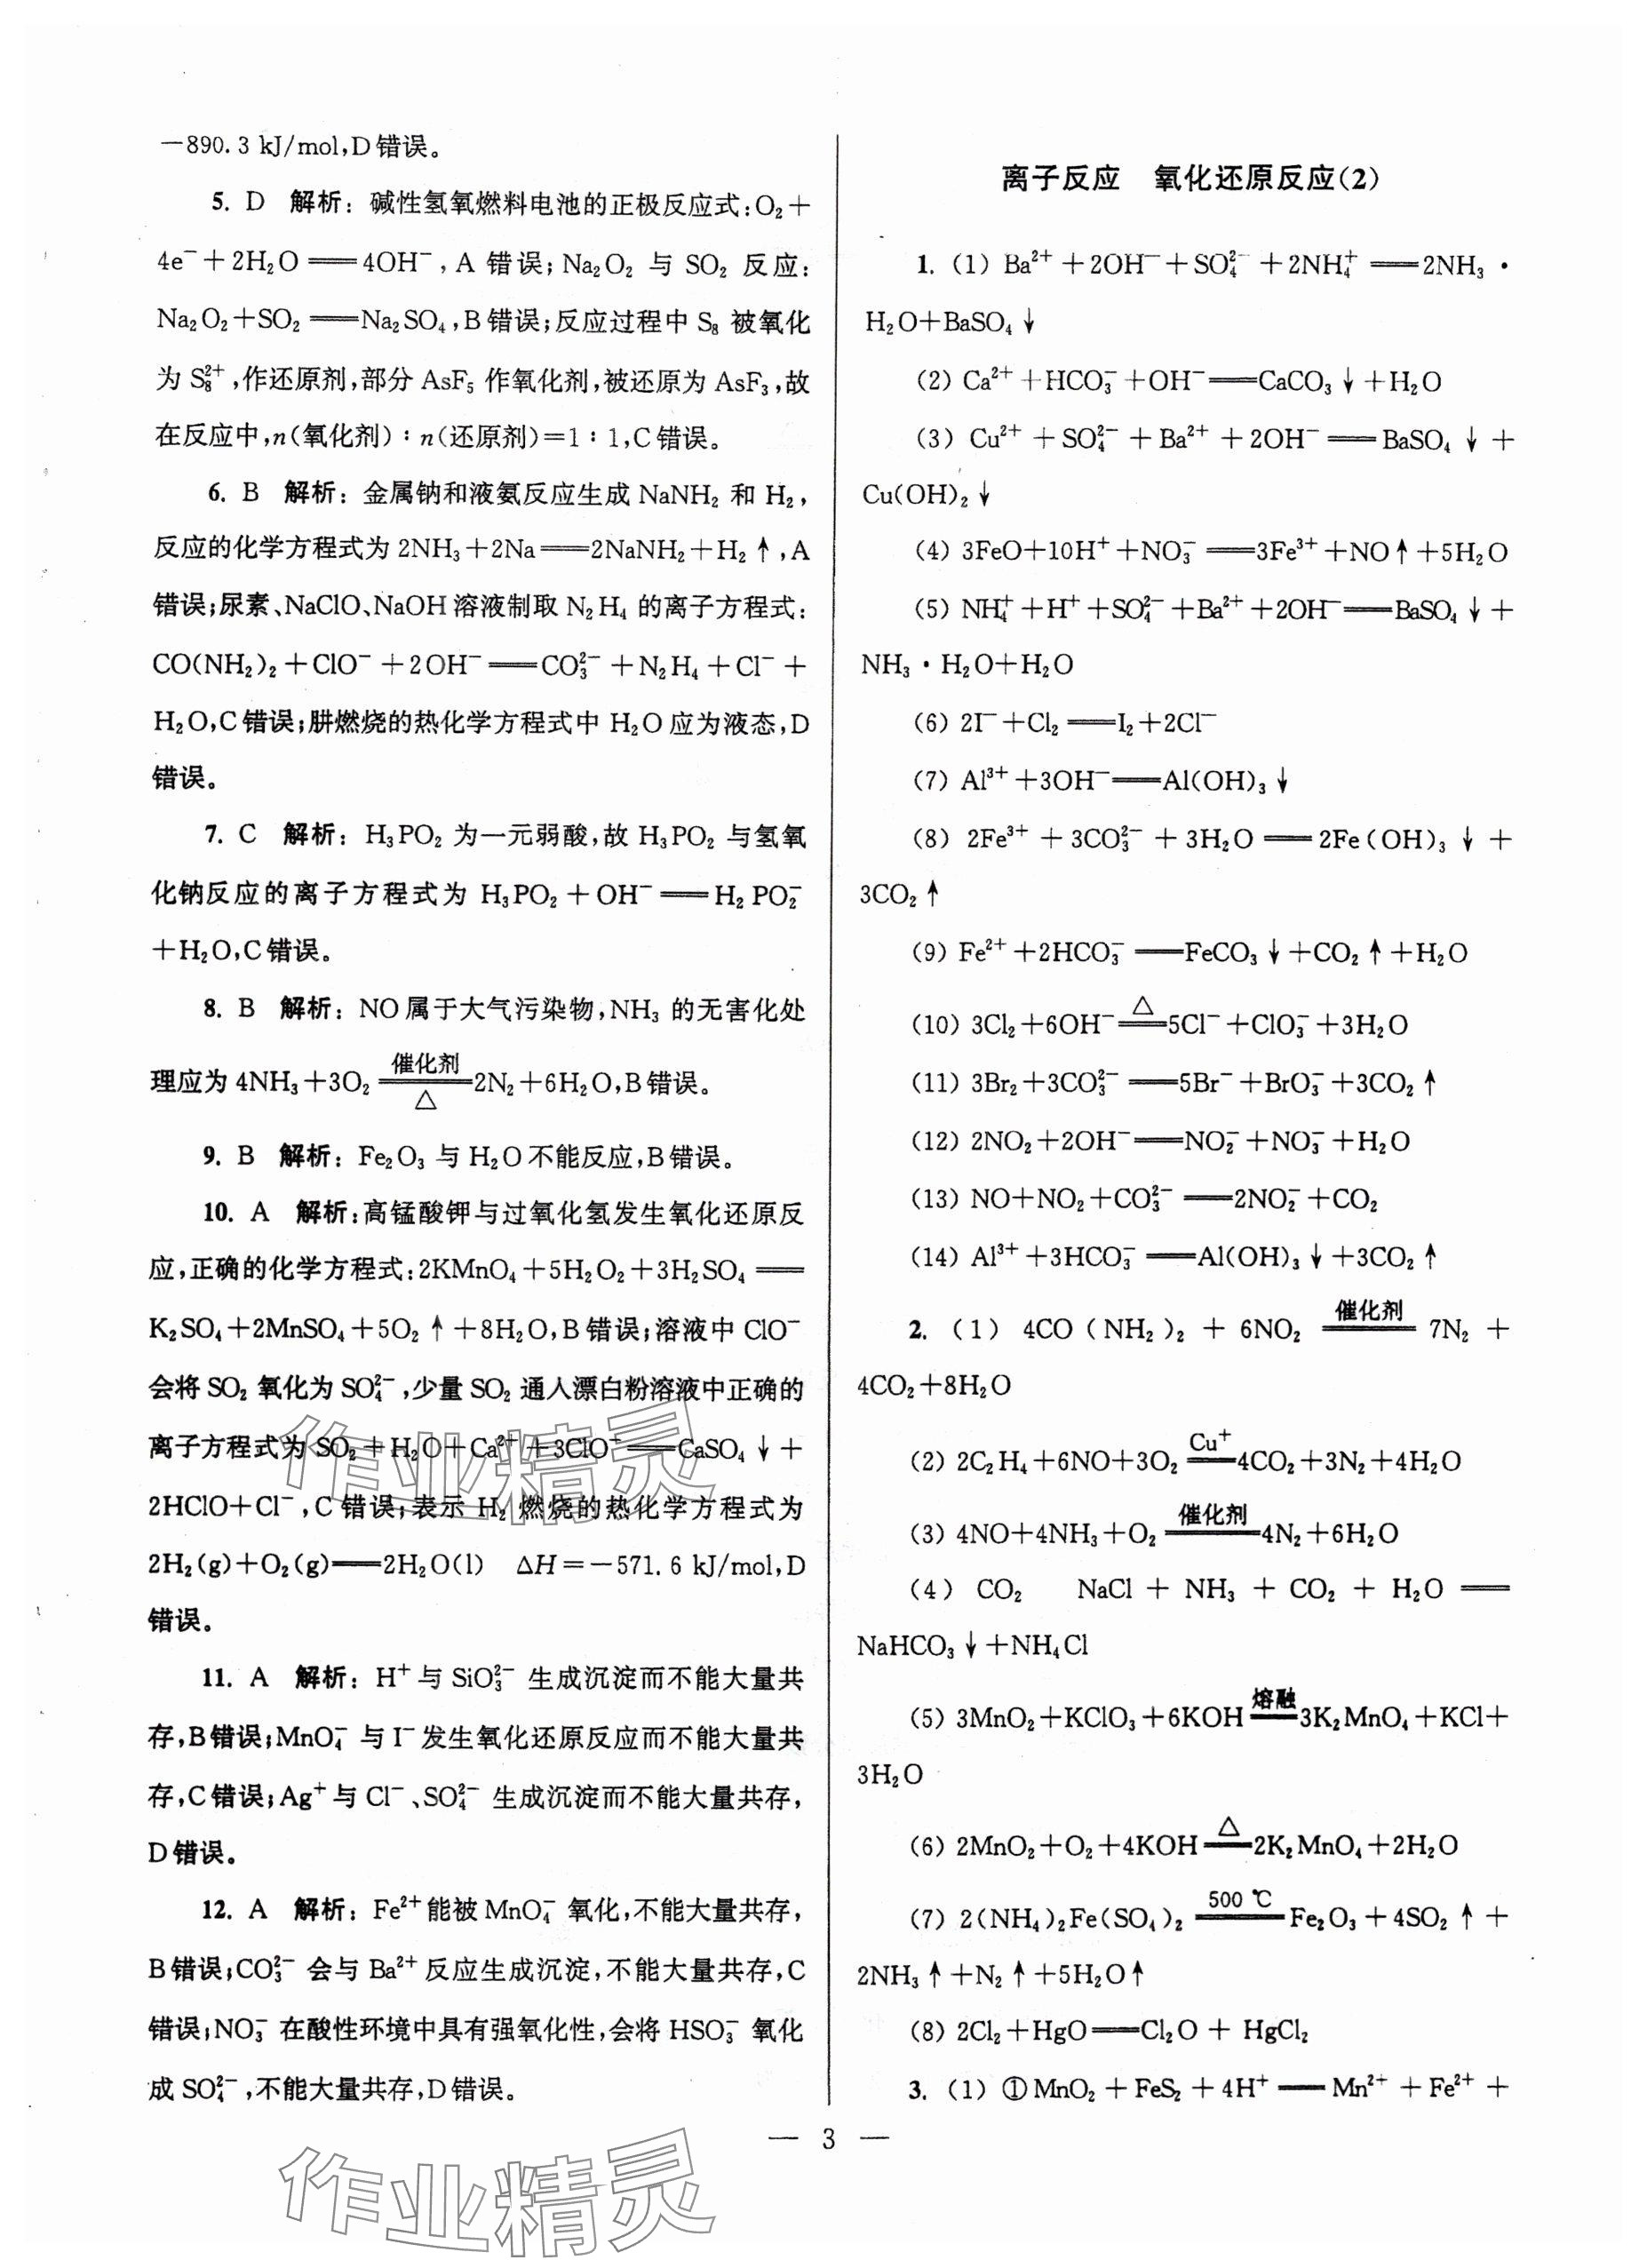 －890.3 kJ/mol,D错误。
5. D 解析：碱性氢氧燃料电池的正极反应式：O₂＋
4e⁻＋2H₂O══4OH⁻，A 错误；Na₂O₂ 与 SO₂ 反应：
Na₂O₂＋SO₂══Na₂SO₄，B错误；反应过程中 S₈ 被氧化
为 S₈²⁺，作还原剂，部分 AsF₅ 作氧化剂，被还原为 AsF₃，故
在反应中，n(氧化剂)：n(还原剂)＝1：1，C错误。
6. B 解析：金属钠和液氨反应生成 NaNH₂ 和 H₂，
反应的化学方程式为 2NH₃＋2Na══2NaNH₂＋H₂↑，A
错误；尿素、NaClO、NaOH溶液制取 N₂H₄ 的离子方程式：
CO(NH₂)₂＋ClO⁻＋2OH⁻══CO₃²⁻＋N₂H₄＋Cl⁻＋
H₂O，C错误；肼燃烧的热化学方程式中 H₂O应为液态，D
错误。
7. C 解析：H₃PO₂ 为一元弱酸，故 H₃PO₂ 与氢氧
化钠反应的离子方程式为 H₃PO₂＋OH⁻══H₂PO₂⁻
＋H₂O，C错误。
8. B 解析：NO属于大气污染物，NH₃ 的无害化处
催化剂
理应为 4NH₃＋3O₂══2N₂＋6H₂O，B错误。
△
9. B 解析：Fe₂O₃ 与 H₂O不能反应，B错误。
10. A 解析：高锰酸钾与过氧化氢发生氧化还原反
应，正确的化学方程式：2KMnO₄＋5H₂O₂＋3H₂SO₄══
K₂SO₄＋2MnSO₄＋5O₂↑＋8H₂O，B错误；溶液中 ClO⁻
会将 SO₂ 氧化为 SO₄²⁻，少量 SO₂ 通人漂白粉溶液中正确的
离子方程式为 SO₂＋H₂O＋Ca²⁺＋3ClO⁻══CaSO₄↓＋
2HClO＋Cl⁻，C错误；表示 H₂ 燃烧的热化学方程式为
2H₂(g)＋O₂(g)══2H₂O(l) ΔH＝－571.6 kJ/mol，D
错误。
11. A 解析：H⁺与 SiO₃²⁻ 生成沉淀而不能大量共
存，B错误；MnO₄⁻ 与 I⁻发生氧化还原反应而不能大量共
存，C错误；Ag⁺与 Cl⁻、SO₄²⁻ 生成沉淀而不能大量共存，
D错误。
12. A 解析：Fe²⁺能被 MnO₄⁻ 氧化，不能大量共存，
B错误；CO₃²⁻ 会与 Ba²⁺反应生成沉淀，不能大量共存，C
错误；NO₃⁻ 在酸性环境中具有强氧化性，会将 HSO₃⁻ 氧化
成 SO₄²⁻，不能大量共存，D错误。
离子反应 氧化还原反应(2)
1. (1) Ba²⁺＋2OH⁻＋SO₄²⁻＋2NH₄⁺══2NH₃·
H₂O＋BaSO₄↓
(2) Ca²⁺＋HCO₃⁻＋OH⁻══CaCO₃↓＋H₂O
(3) Cu²⁺＋SO₄²⁻＋Ba²⁺＋2OH⁻══BaSO₄↓＋
Cu(OH)₂↓
(4) 3FeO＋10H⁺＋NO₃⁻══3Fe³⁺＋NO↑＋5H₂O
(5) NH₄⁺＋H⁺＋SO₄²⁻＋Ba²⁺＋2OH⁻══BaSO₄↓＋
NH₃·H₂O＋H₂O
(6) 2I⁻＋Cl₂══I₂＋2Cl⁻
(7) Al³⁺＋3OH⁻══Al(OH)₃↓
(8) 2Fe³⁺＋3CO₃²⁻＋3H₂O══2Fe(OH)₃↓＋
3CO₂↑
(9) Fe²⁺＋2HCO₃⁻══FeCO₃↓＋CO₂↑＋H₂O
△
(10) 3Cl₂＋6OH⁻══5Cl⁻＋ClO₃⁻＋3H₂O
(11) 3Br₂＋3CO₃²⁻══5Br⁻＋BrO₃⁻＋3CO₂↑
(12) 2NO₂＋2OH⁻══NO₂⁻＋NO₃⁻＋H₂O
(13) NO＋NO₂＋CO₃²⁻══2NO₂⁻＋CO₂
(14) Al³⁺＋3HCO₃⁻══Al(OH)₃↓＋3CO₂↑
催化剂
2. (1) 4CO(NH₂)₂＋6NO₂══7N₂＋
4CO₂＋8H₂O
Cu⁺
(2) 2C₂H₄＋6NO＋3O₂══4CO₂＋3N₂＋4H₂O
催化剂
(3) 4NO＋4NH₃＋O₂══4N₂＋6H₂O
(4) CO₂ NaCl＋NH₃＋CO₂＋H₂O══
NaHCO₃↓＋NH₄Cl
熔融
(5) 3MnO₂＋KClO₃＋6KOH══3K₂MnO₄＋KCl＋
3H₂O
△
(6) 2MnO₂＋O₂＋4KOH══2K₂MnO₄＋2H₂O
500 ℃
(7) 2(NH₄)₂Fe(SO₄)₂══Fe₂O₃＋4SO₂↑＋
2NH₃↑＋N₂↑＋5H₂O↑
(8) 2Cl₂＋HgO══Cl₂O＋HgCl₂
3. (1) ①MnO₂＋FeS₂＋4H⁺══Mn²⁺＋Fe²⁺＋
— 3 —
作业精灵
作业精灵